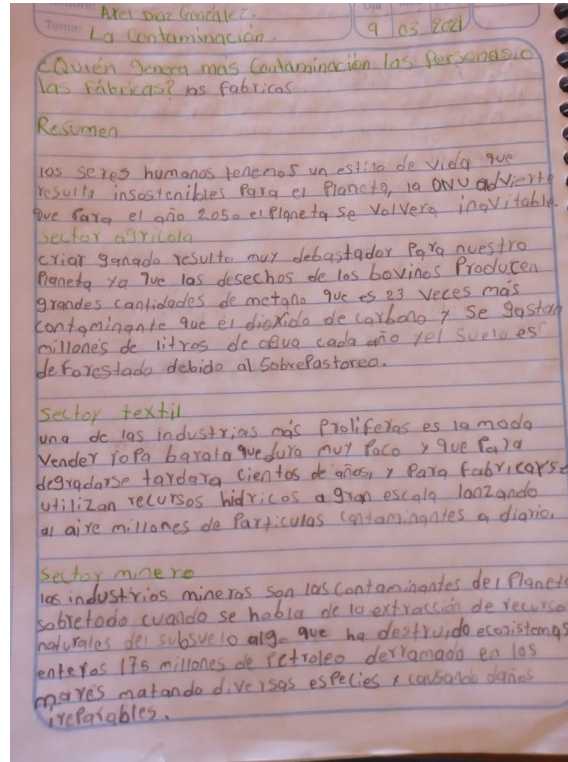 Axel Diaz González.
Tema: La Contaminación.
9 03 2021
¿Quién Genera más Contaminación las Personas o
las Fábricas? las fabricas
Resumen
los seres humanos tenemos un estilo de vida que
resulta insostenibles Para el Planeta, la ONU advierte
que Para el año 2050 el Planeta se volvera inavitable.
Sector agricola
criar ganado resulto muy debastador Para nuestro
Planeta ya que los desechos de los bovinos Producen
grandes cantidades de metano que es 23 veces más
contaminante que el dioxido de carbono y se gastan
millones de litros de agua cada año y el suelo es
deforestado debido al SobrePastoreo.
Sector textil
una de las industrias más Proliferas es la moda
Vender ropa barata que dura muy Poco y que Para
degradarse tardara cientos de años, y Para fabricarse
utilizan recursos hidricos a gran escala lanzando
al aire millones de Particulas contaminantes a diario.
Sector minero
las industrias mineras son las contaminantes del Planeta
sobretodo cuando se habla de la extracción de recurso
naturales del subsuelo algo que ha destruido ecosistemas
enteros 175 millones de Petroleo derramado en los
mares matando diversas especies y causando daños
irreparables.